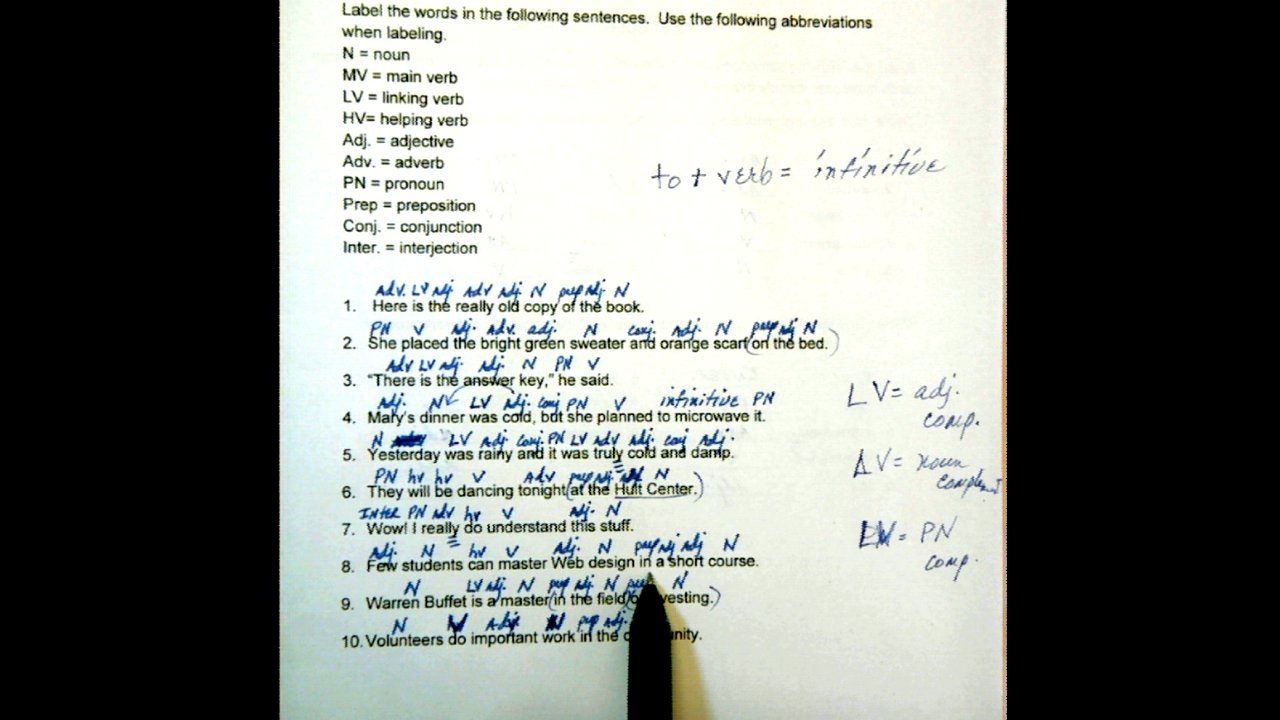 Label the words in the following sentences. Use the following abbreviations
when labeling.
N = noun
MV = main verb
LV = linking verb
HV= helping verb
Adj. = adjective
Adv. = adverb
PN = pronoun
to + verb = infinitive
Prep = preposition
Conj. = conjunction
Inter. = interjection
Adv. LV Adj. Adv Adj. N prep Adj. N
1. Here is the really old copy of the book.
PN V Adj. Adv. adj. N conj. Adj. N prep adj N
2. She placed the bright green sweater and orange scarf (on the bed.)
Adv LV Adj. Adj. N PN V
3. "There is the answer key," he said.
Adj. N LV Adj. conj PN V infinitive PN
4. Mary's dinner was cold, but she planned to microwave it.
LV = adj.
comp.
N LV Adj conj. PN LV adv adj. conj Adj.
5. Yesterday was rainy and it was truly cold and damp.
LV = noun
PN hv hv V Adv prep adj N
6. They will be dancing tonight (at the Hult Center.)
INTER PN adv hv V Adj. N
7. Wow! I really do understand this stuff.
LV = PN
comp.
Adj. N hv V Adj. N prep adj adj N
8. Few students can master Web design in a short course.
N LV Adj. N prep adj. N N
9. Warren Buffet is a master (in the field
N Adj. N prep adj.
10. Volunteers do important work in the